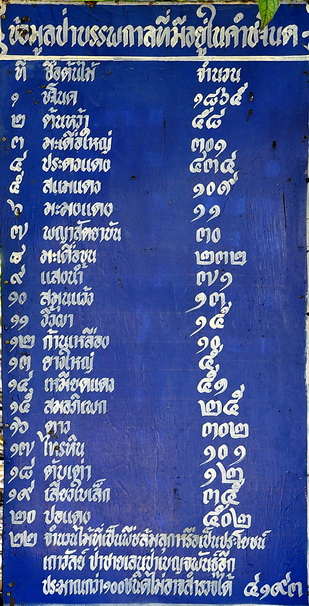 ข้อมูลป่าบรรพกาลที่มีอยู่ในคำชะโนด
ที่ ชื่อต้นไม้ จำนวน
๑ ชะโนด ๑๘๖๕
๒ ต้นหว้า ๕๘
๓ มะเดื่อใหญ่ ๓๐๑
๔ ประดงแดง ๔๓๔
๕ สแมแดง ๑๐๙
๖ มะมงแดง ๑๑
๗ พญาสัตบรรณ ๓๐
๘ มะเดื่อขน ๒๓๒
๙ แสงน้ำ ๗๑
๑๐ สมุนแว้ง ๑๓
๑๑ ๑๕
๑๒ ก้านเหลือง ๑๐
๑๓ ยางใหญ่ ๕
๑๔ เหมือดแดง ๕๑
๑๕ สมอภิเพก ๒๕
๑๖ ๓๐๒
๑๗ ไทรหิน ๑๐๑
๑๘ ตับเต่า ๑๒
๑๙ เสี้ยวใบเล็ก ๓๕
๒๐ ปอแดง ๕๐๒
๒๒ จำนวนไม้ที่เป็นพืชล้มลุกหรือเป็นประโยชน์
เถาวัลย์ ป่าชายเลนป่าเบญจพันธ์อีก
ประมาณกว่า๑๐๐ชนิดไม่อาจสำรวจได้ ๔๑๙๓